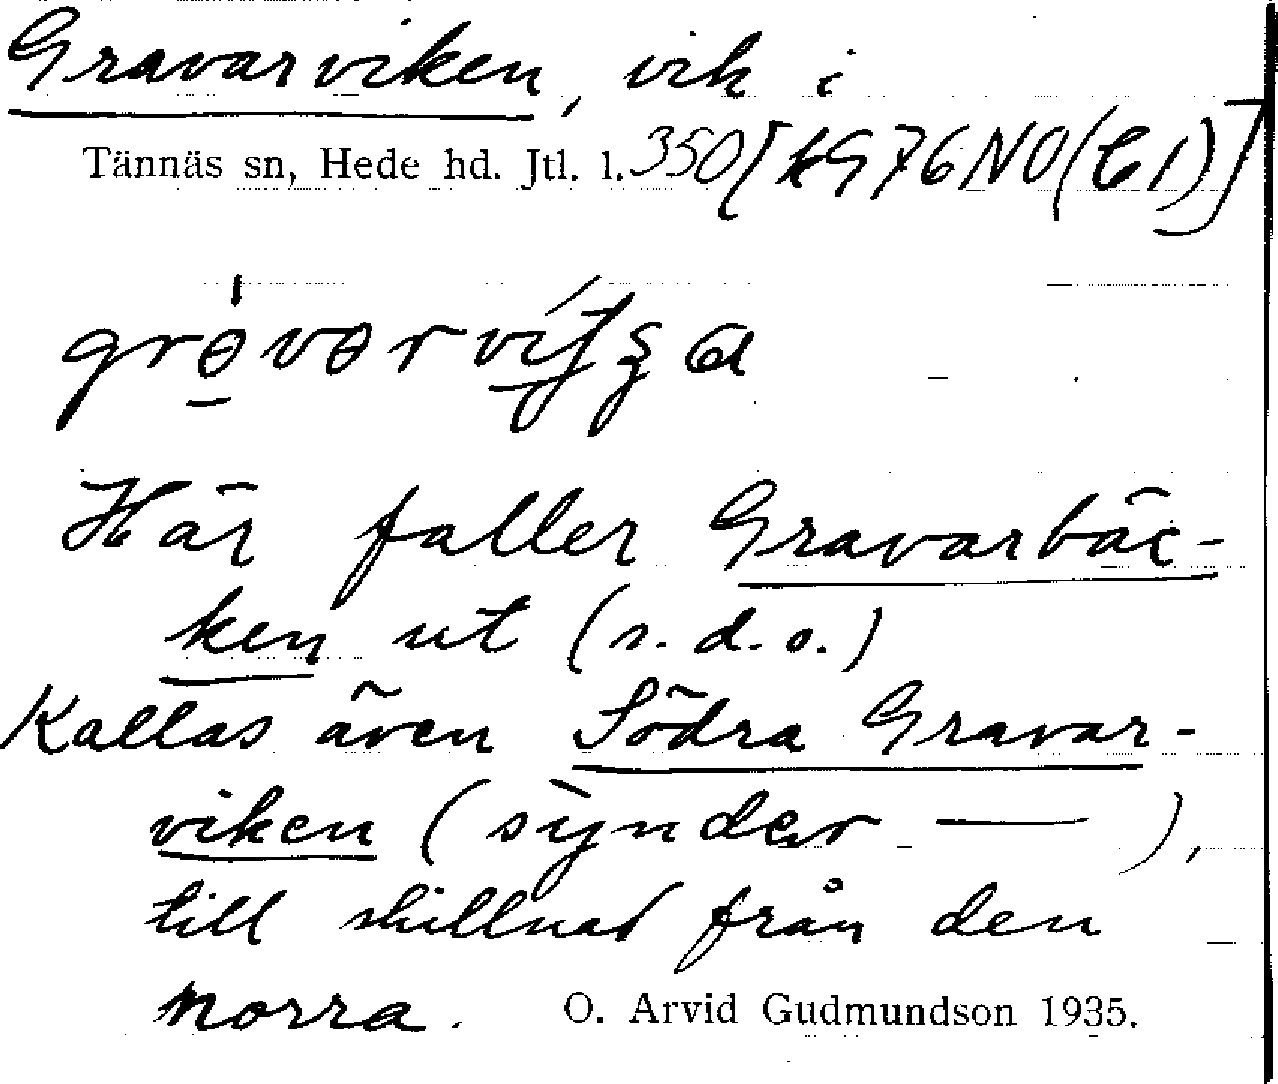 Gravarviken, vik i
Tännäs sn, Hede hd. Jtl. l. 350 [k976NO(C1)]
Här faller Gravarbäc-
ken ut (s.d.o.)
Kallas även Södra Gravar-
viken (synder — ),
till skillnad från den
norra. O. Arvid Gudmundson 1935.